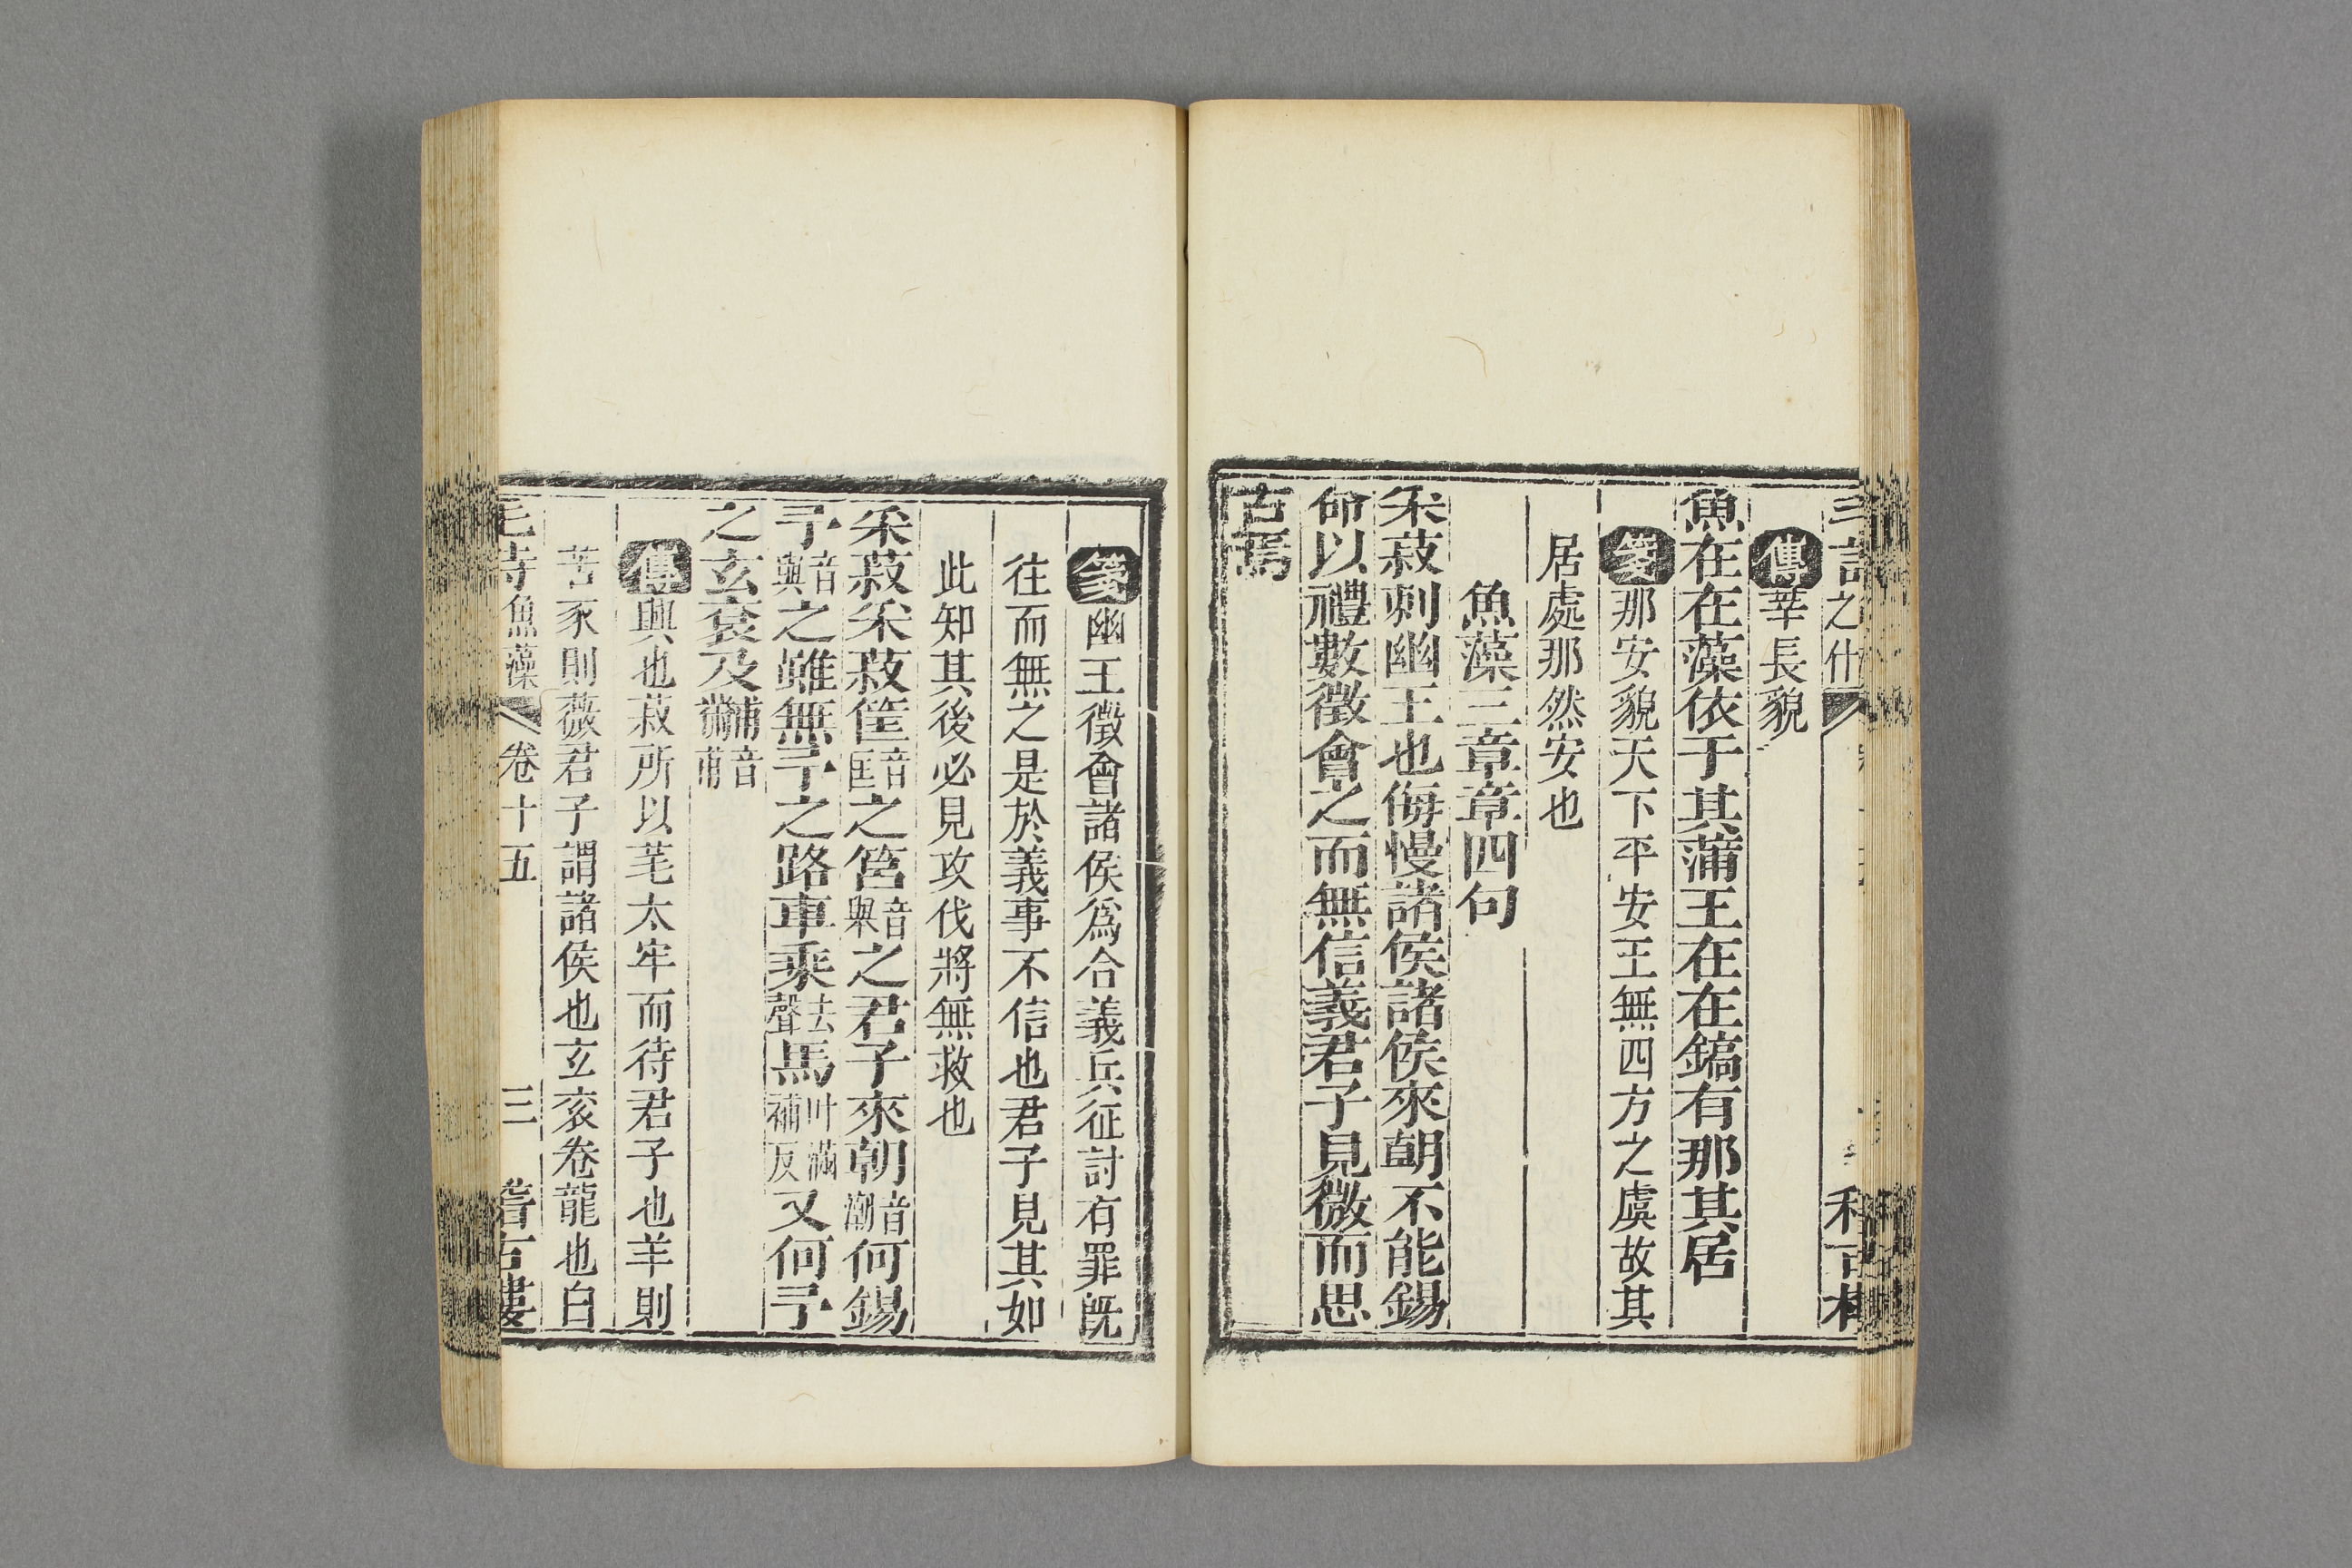 傳莘長貌
魚在在藻依于其蒲王在在鎬有那其居
箋那安貌天下平安王無四方之虞故其
居處那然安也
魚藻三章章四句
采菽刺幽王也侮慢諸侯諸侯來朝不能錫
命以禮數徵會之而無信義君子見微而思
古焉
箋幽王徵會諸侯爲合義兵征討有罪旣
往而無之是於義事不信也君子見其如
此知其後必見攻伐將無救也
采菽采菽筐音匡之筥音舉之君子來朝音潮何錫
予音與之雖無予之路車乘去聲馬叶滿補反又何予
之玄袞及黼音甫
傳興也菽所以芼太牢而待君子也羊則
苦豕則薇君子謂諸侯也玄袞卷龍也白
毛詩魚藻 卷十五 三 稽古樓